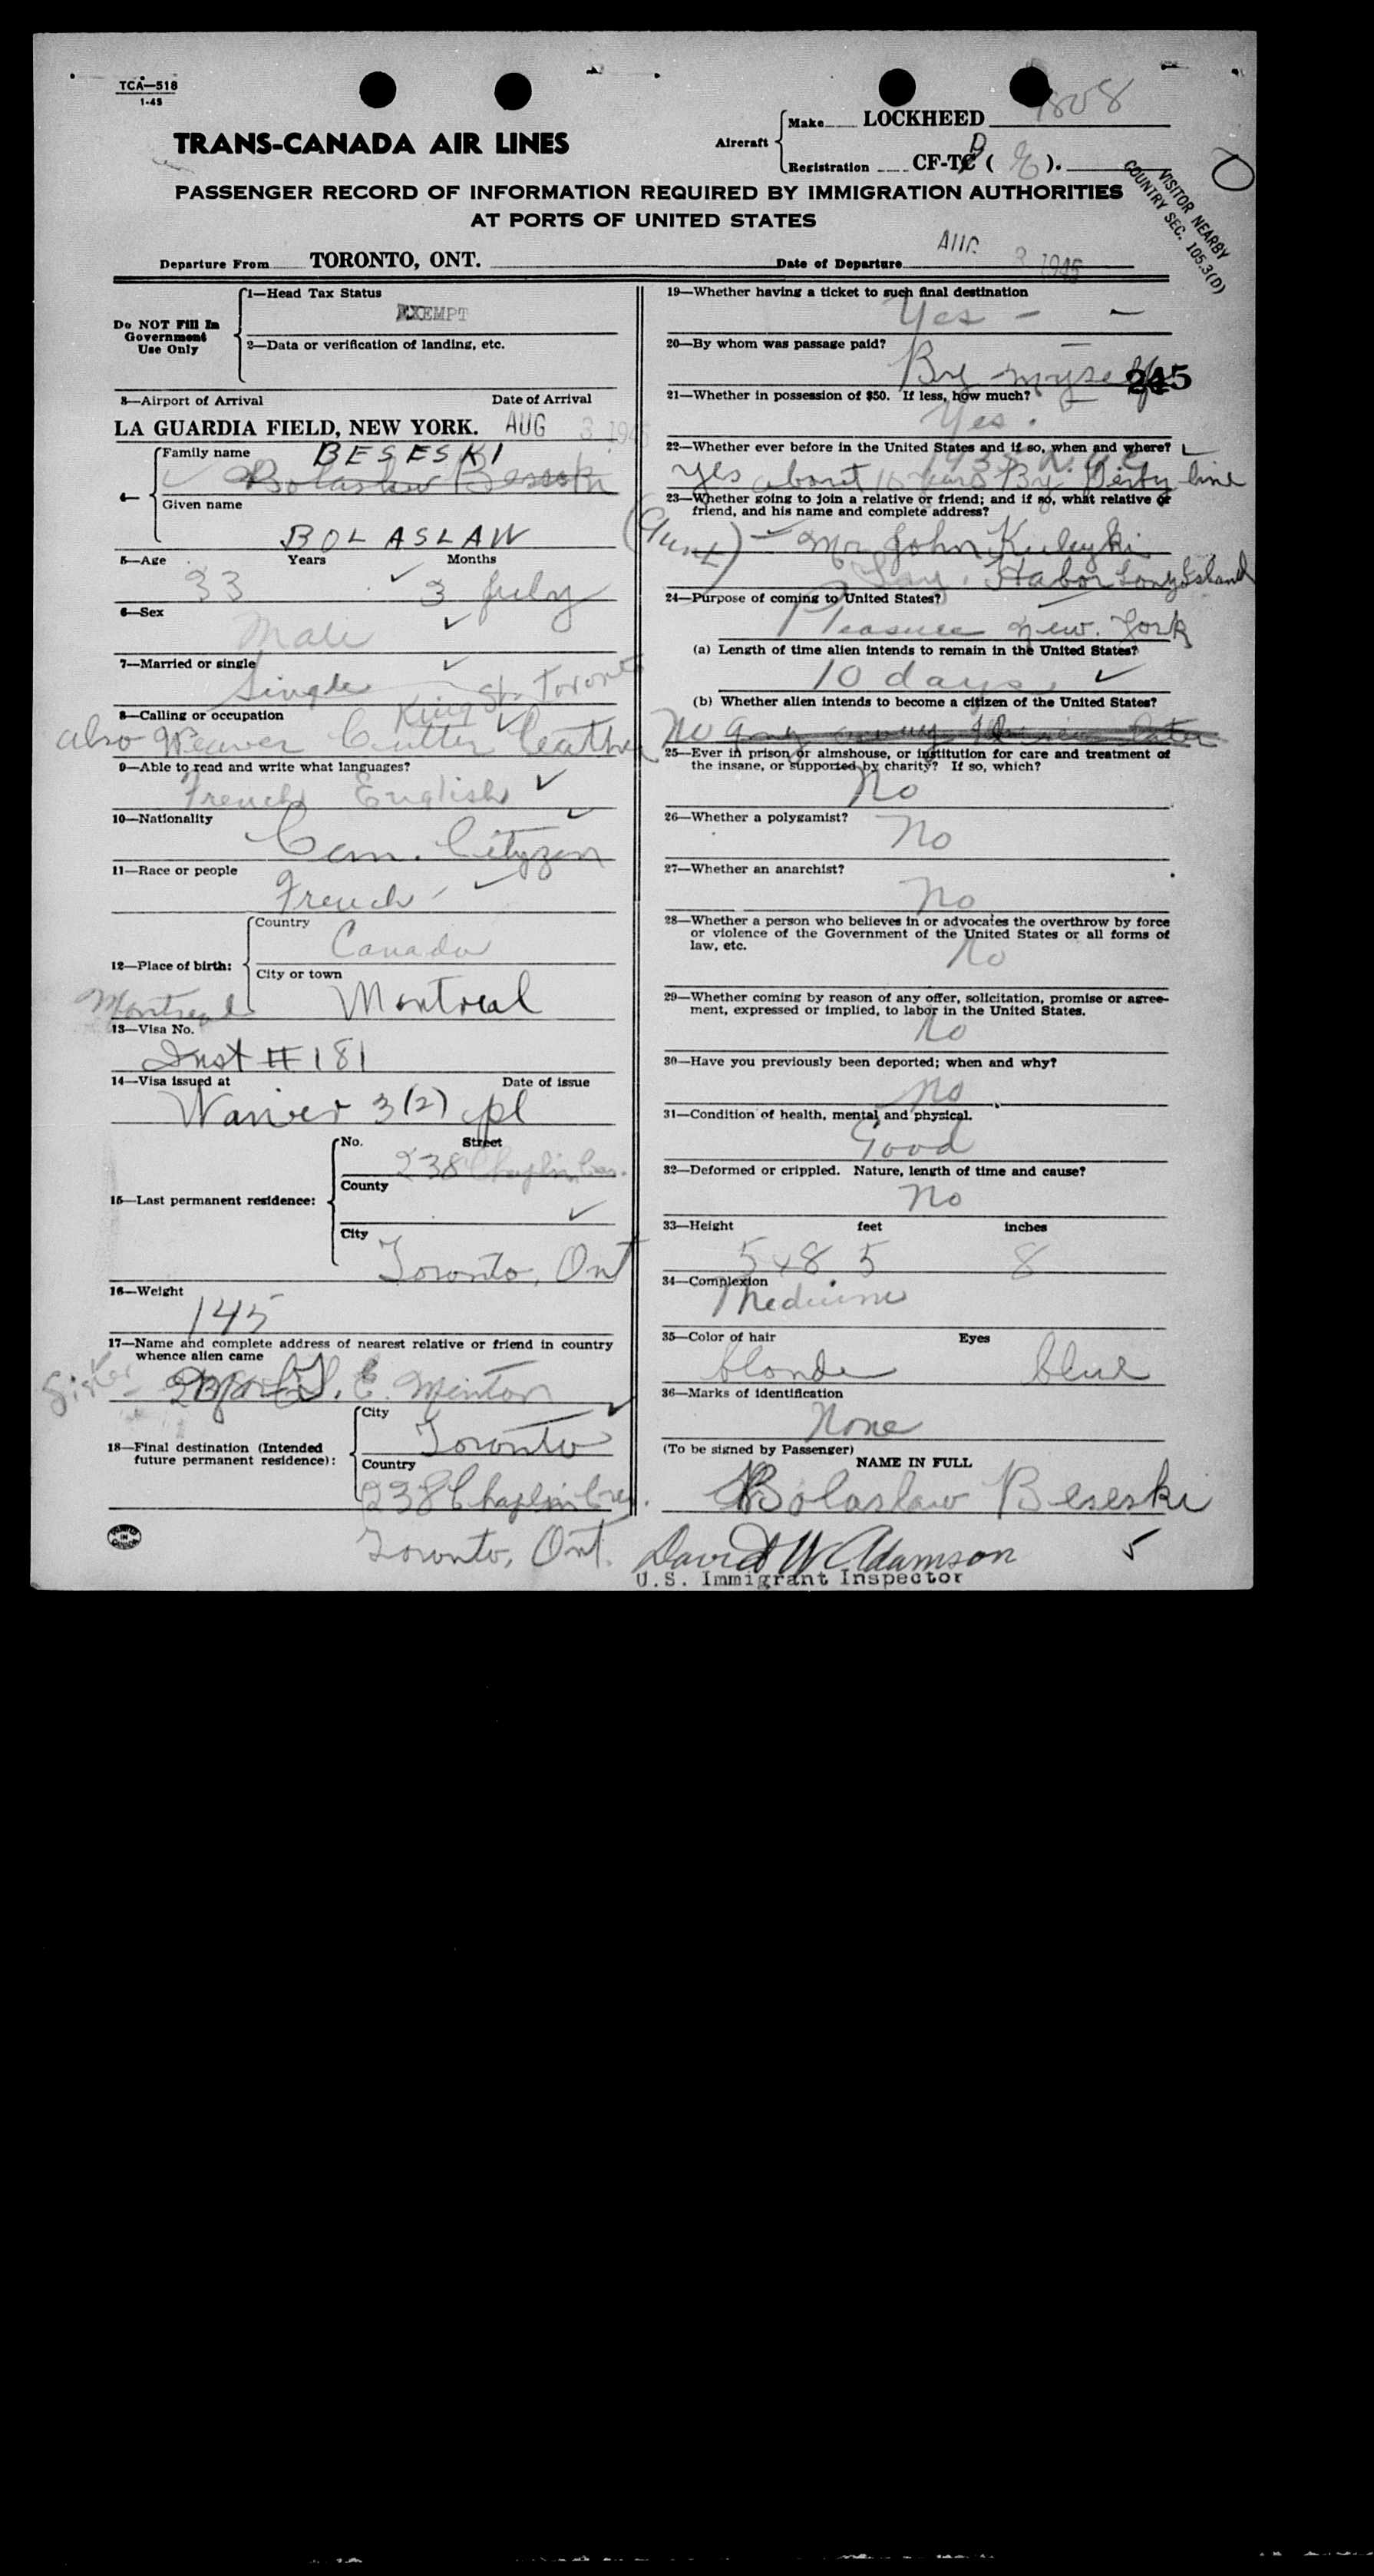 TCA—518
1-45
1808
TRANS-CANADA AIR LINES
Aircraft
Make LOCKHEED
Registration CF-TC ( ).
PASSENGER RECORD OF INFORMATION REQUIRED BY IMMIGRATION AUTHORITIES
AT PORTS OF UNITED STATES
VISITOR NEARBY
COUNTRY SEC. 105.3(D)
Departure From TORONTO, ONT.
Date of Departure AUG 3 1945
Do NOT Fill In
Government
Use Only
1—Head Tax Status
EXEMPT
2—Data or verification of landing, etc.
3—Airport of Arrival Date of Arrival
LA GUARDIA FIELD, NEW YORK. AUG 3 194
4—
Family name BESESKI
Bolaslaw
Given name
BOLASLAW
5—Age Years Months
33 3 July
6—Sex
Male
7—Married or single
Single
King St. Toronto
8—Calling or occupation
also Weaver Cutter leather
9—Able to read and write what languages?
French English
10—Nationality
Can. Cityzen
11—Race or people
French
12—Place of birth:
Country
Canada
City or town
Montreal Montreal
13—Visa No.
Inst # 181
14—Visa issued at Date of issue
Waiver 3(2)
15—Last permanent residence:
No. Street
238 Chaplin Cres.
County
City
Toronto, Ont
16—Weight
145
17—Name and complete address of nearest relative or friend in country
whence alien came
Sister E. Minton
18—Final destination (Intended
future permanent residence):
City
Toronto
Country
238 Chaplin Cres.
Toronto, Ont.
19—Whether having a ticket to such final destination
Yes —
20—By whom was passage paid?
By myself
245
21—Whether in possession of $50. If less, how much?
Yes.
22—Whether ever before in the United States and if so, when and where?
Yes about 10 years By Derby line
23—Whether going to join a relative or friend; and if so, what relative or
friend, and his name and complete address?
(Aunt) — Mr John
Harbor Long Island
24—Purpose of coming to United States?
Pleasure New. York
(a) Length of time alien intends to remain in the United States?
10 days
(b) Whether alien intends to become a citizen of the United States?
No later
25—Ever in prison or almshouse, or institution for care and treatment of
the insane, or supported by charity? If so, which?
No
26—Whether a polygamist?
No
27—Whether an anarchist?
No
28—Whether a person who believes in or advocates the overthrow by force
or violence of the Government of the United States or all forms of
law, etc.
No
29—Whether coming by reason of any offer, solicitation, promise or agree-
ment, expressed or implied, to labor in the United States.
No
30—Have you previously been deported; when and why?
No
31—Condition of health, mental and physical.
Good
32—Deformed or crippled. Nature, length of time and cause?
No
33—Height feet inches
5 x 8 5 8
34—Complexion
Medium
35—Color of hair Eyes
blonde blue
36—Marks of identification
None
(To be signed by Passenger)
NAME IN FULL
Bolaslaw Beseski
David W Adamson
U.S. Immigrant Inspector